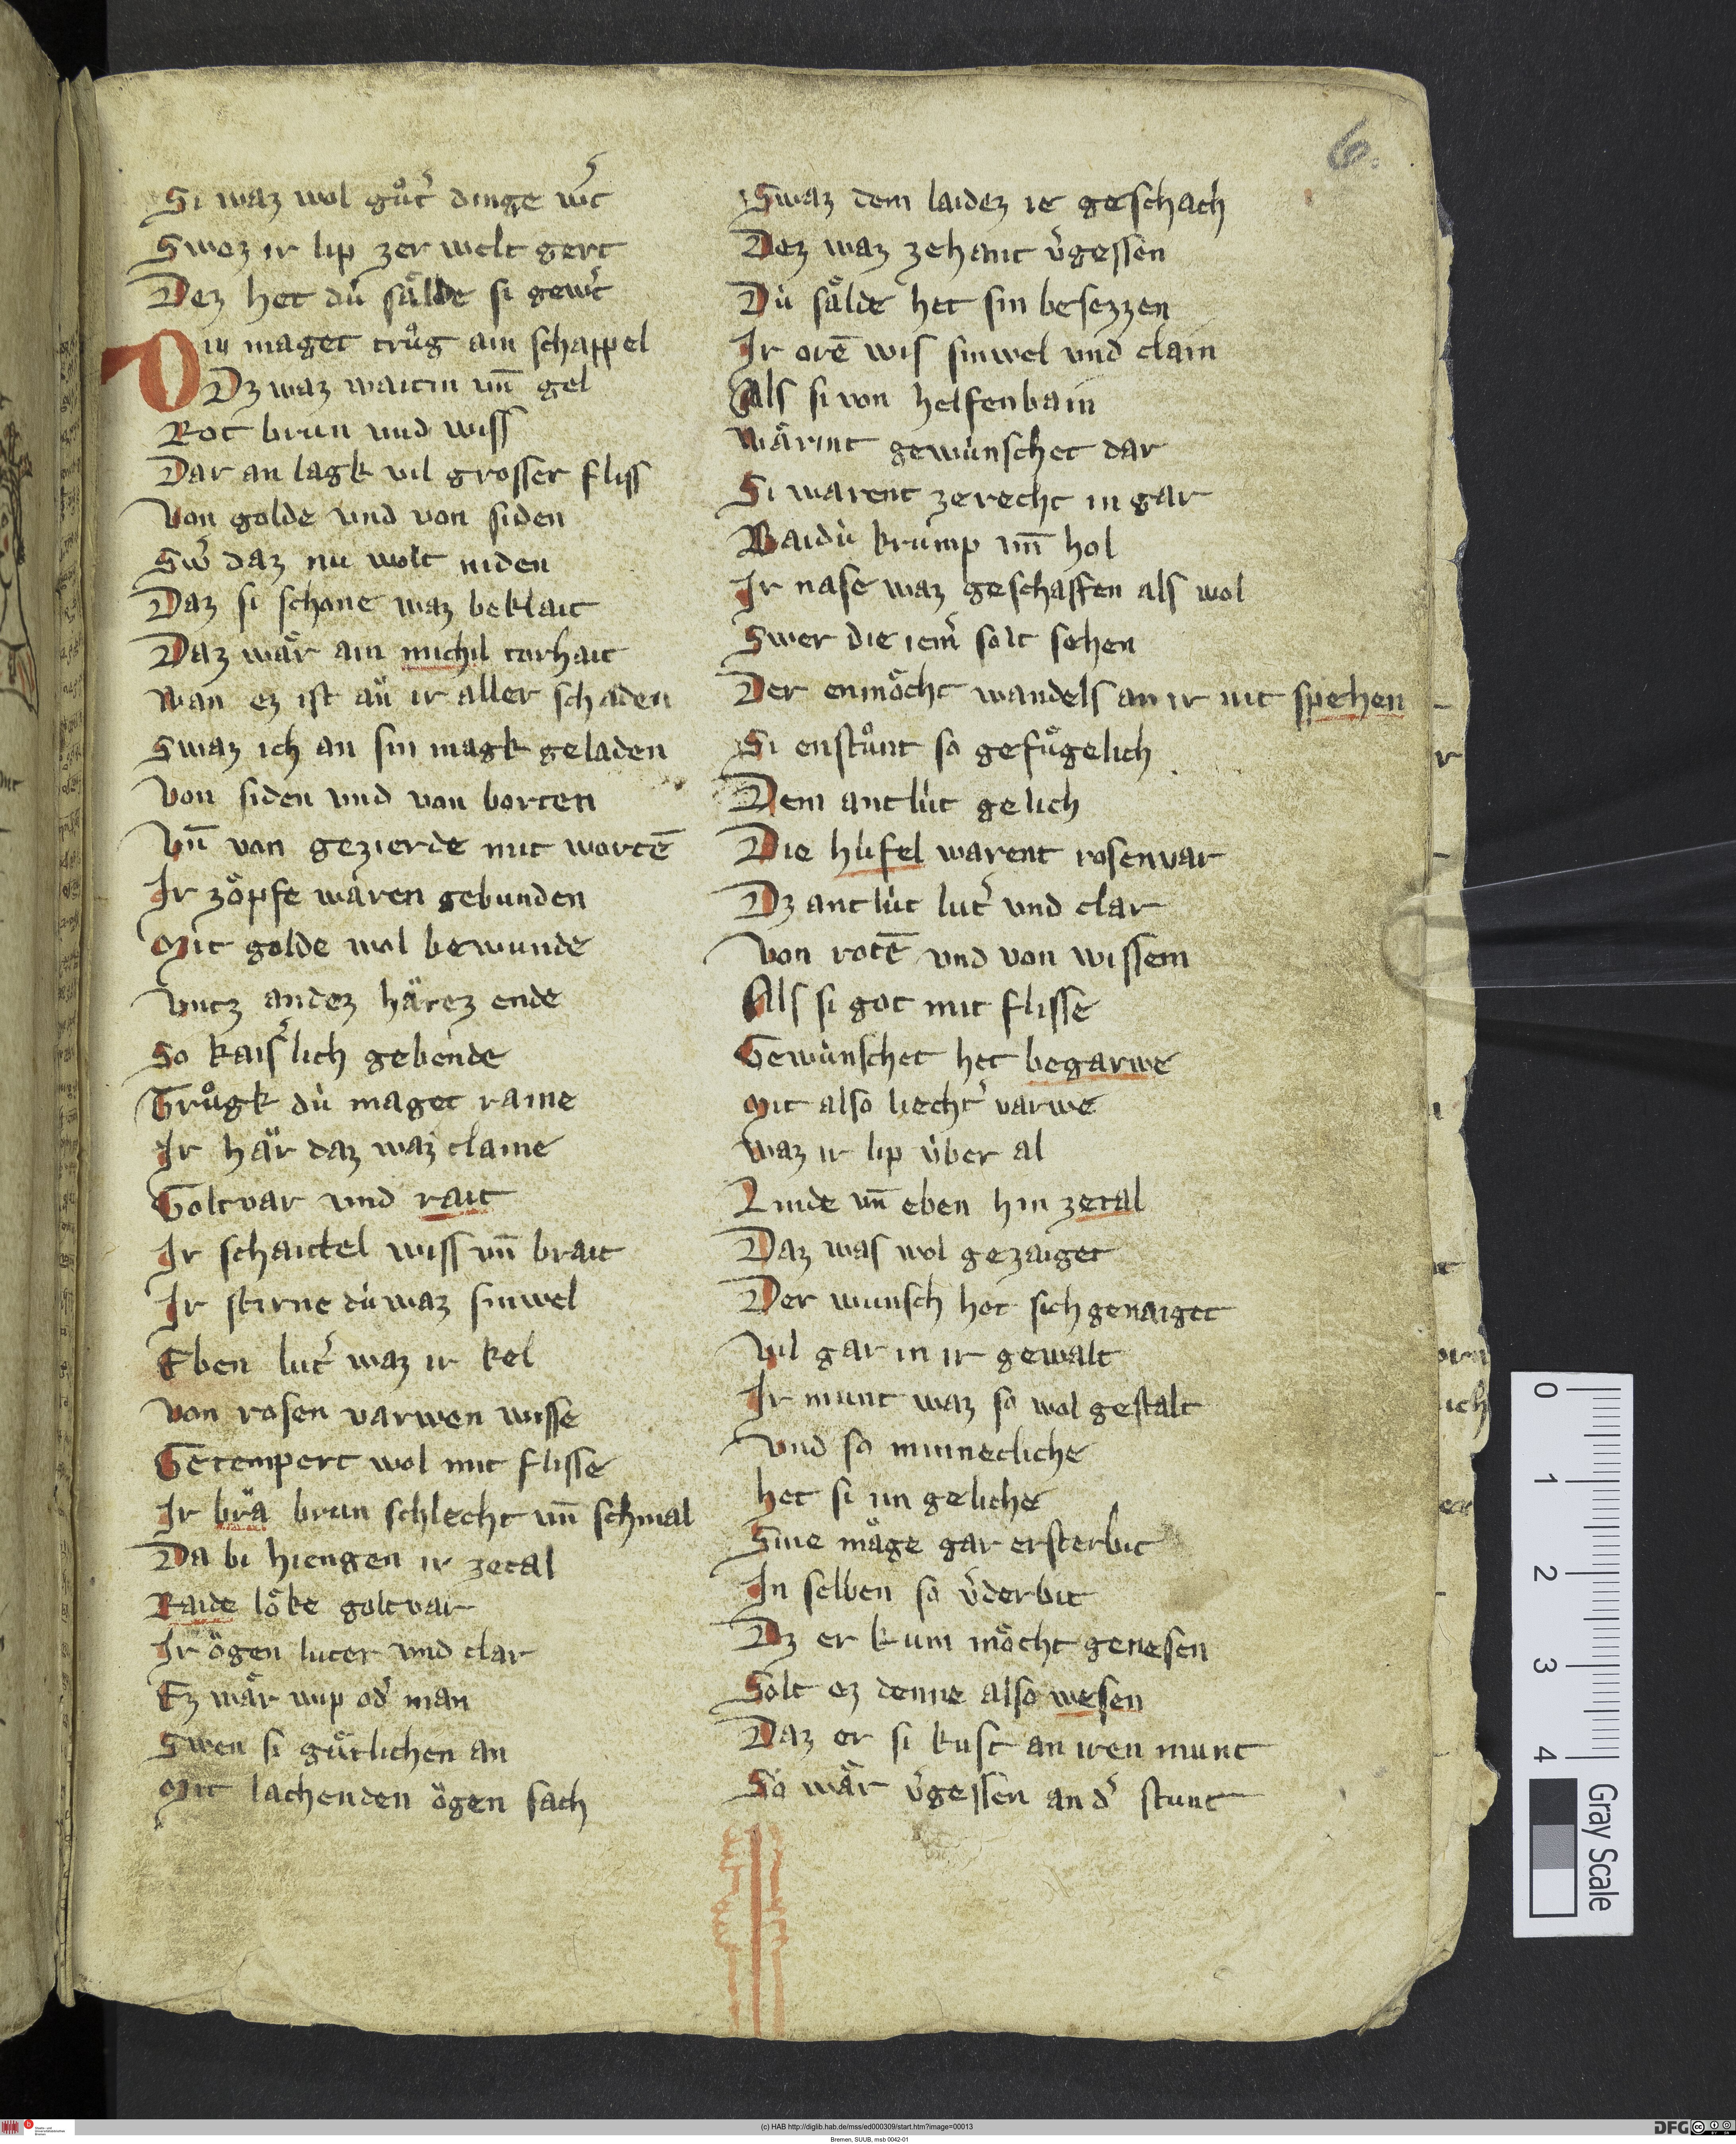 6.
Si waz wol gůt̕ dinge w̕t
Swez ir lip zer welt gert
Dez het dú sälde si gew̕t
Diu maget trůg ain schappel
Dz waz waitin vn̄ gel
Rot brun vnd wiss
Dar an lagk vil grosser fliss
Von golde vnd von siden
Sw̕ daz nu wolt niden
Daz si schone waz beklait
Daz wär ain michil torhait
Wan ez ist an ir aller schaden
Swaz ich an sin magk geladen
Von siden vnd von borten
Vn̄ von gezierde mit wortē
Ir zöpfe wären gebunden
Mit golde wol bewunde
Vntz andez härez ende
So kais̕lich gebende
Trůgk dú maget raine
Ir här daz waz claine
Goltvar vnd rait
Ir schaitel wiss vn̄ brait
Ir stirne dú waz sinwel
Eben lut̕ waz ir kel
Von rosen varwen wisse
Getempert wol mit flisse
Ir brä brun schlecht vn̄ schmal
Da bi hiengen ir zetal
Raide löke goltvar
Ir ögen luter vnd clar
Ez wär wip od̕ man
Swen si gütlichen an
Mit lachenden ögen sach
Swaz dem laidez ie geschach
Dez waz zehant v̕gessen
Dú sälde het sin besezzen
Ir orē wis sinwel vnd clain
Als si von helfenbain
Wärint gewúnschet dar
Si warent zerecht in gar
Baidú krump vn̄ hol
Ir nase waz geschaffen als wol
Swer die iem̕ solt sehen
Der enmöcht wandels an ir nit spehen
Si enstůnt so gefůgelich
Dem antlút gelich
Die húfel warent rosenvar
Dz antlút lut̕ vnd clar
Von rotē vnd von wissem
Als si got mit flisse
Gewúnschet het begarwe
Mit also liecht̕ varwe
Waz ir lip úber al
Linde vn̄ eben hin zetal
Daz was wol gezaiget
Der wunsch het sich genaiget
Vil gar in ir gewalt
Ir munt waz so wol gestalt
Vnd so minnecliche
Het si im geliche
Sine mäge gar ersterbit
In selben so v̕derbit
Dz er kum möcht genesen
Solt ez denne also wesen
Daz er si kust an iren munt
So wär v̕gessen an d̕ stunt
0 1 2 3 4
Gray Scale
(c) HAB http://diglib.hab.de/mss/ed000309/start.htm?image=00013
Bremen, SUUB, msb 0042-01
DFG